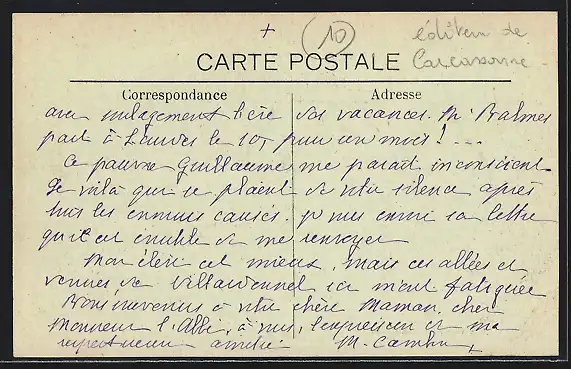 10
éditeur de
Carcassonne
CARTE POSTALE
Correspondance
Adresse
avec soulagement vos vacances. Mr Balmes
part à Londres le 10, pour un mois ! ...
Ce pauvre Guillaume me parait inconscient
le voilà qui se plaint de votre silence après
tous les ennuis causés. je vous envoie sa lettre
qu'il est inutile de me renvoyer
Mon élève est mieux, mais ces allées et
venues de Villardonnel ici m'ont fatiguée
Bons souvenirs à votre chère Maman, cher
Monsieur l'Abbé, à vous, l'expression de ma
respectueuse amitié. M.